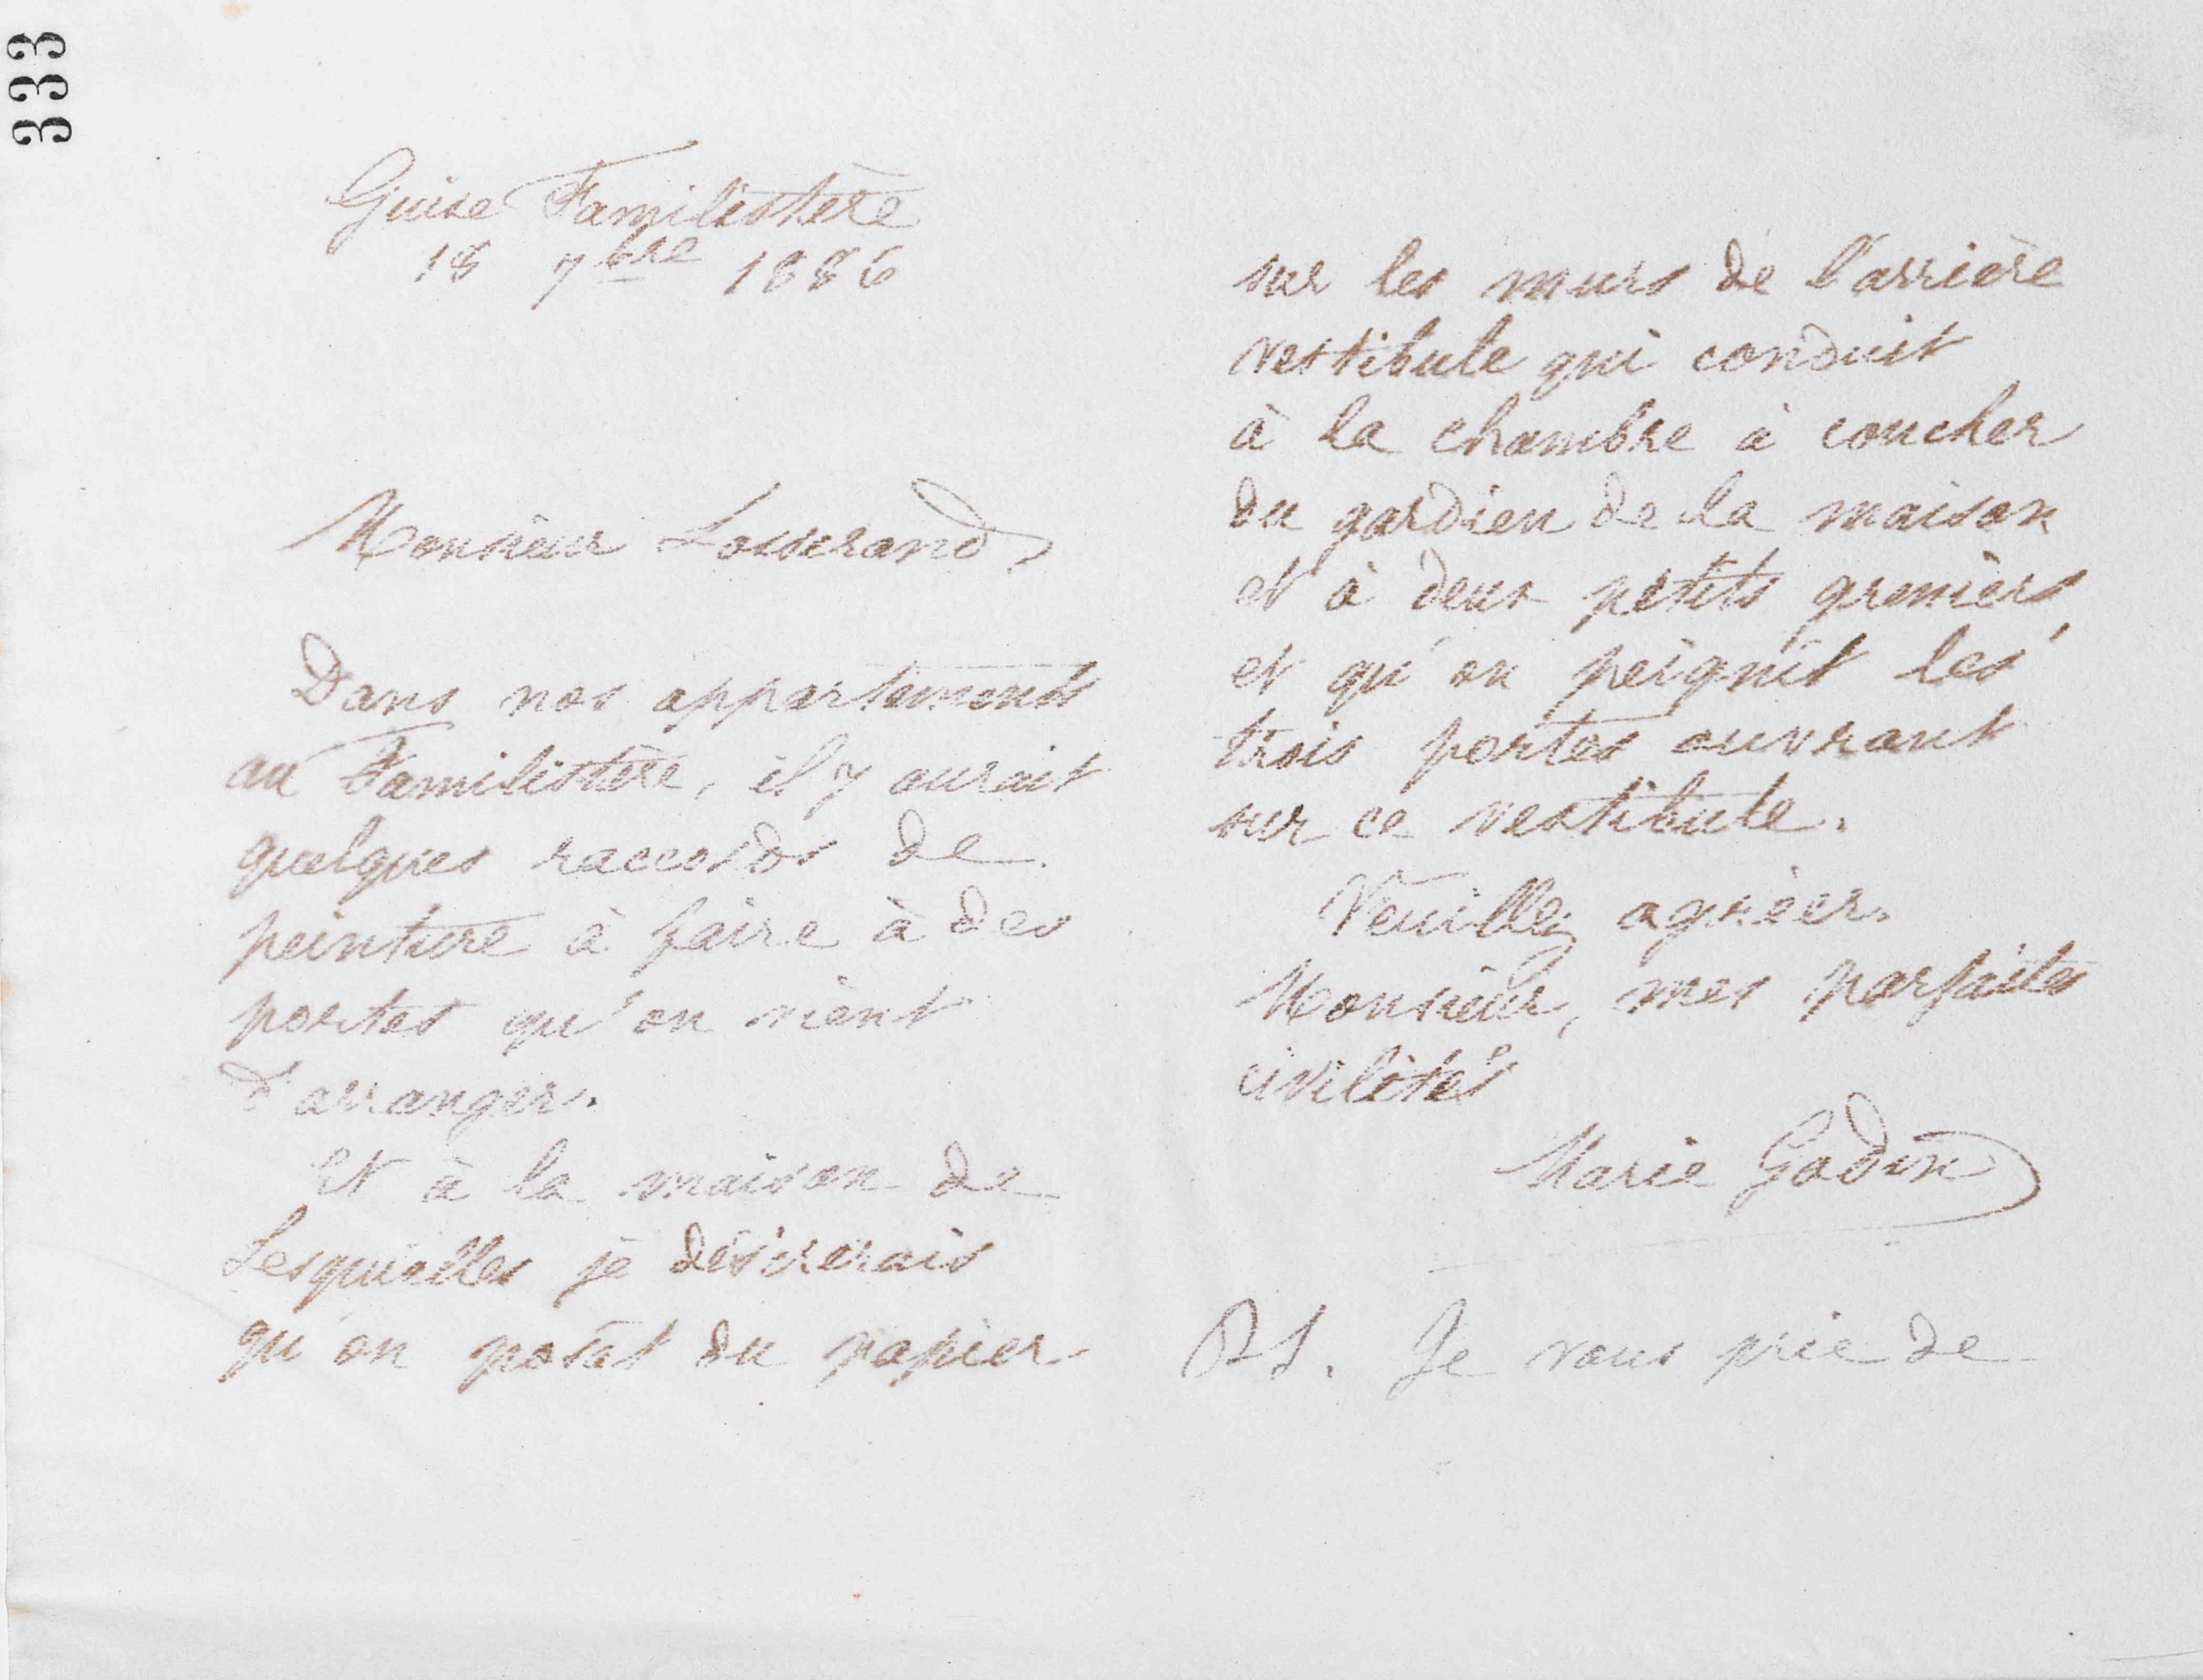 333
Guise Familistère
18 7bre 1886
Monsieur Losserand,
Dans nos appartements
au Familistère, il y aurait
quelques raccords de
peinture à faire à des
portes qu'on vient
d'arranger.
Et à la maison de
Lesquielles je désirerais
qu'on posât du papier
sur les murs de l'arrière
vestibule qui conduit
à la chambre à coucher
du gardien de la maison
et à deux petits greniers,
et qu'on peignît les
trois portes ouvrant
sur ce vestibule.
Veuillez agréer,
Monsieur, mes parfaites
civilités
Marie Godin
PS. Je vous prie de